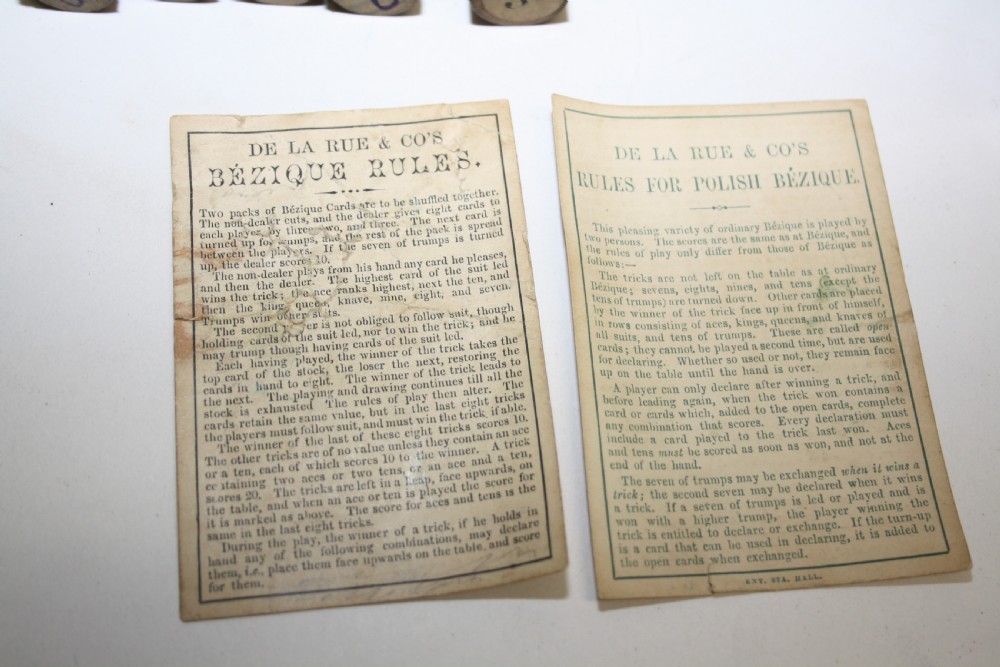 DE LA RUE & CO'S
BÉZIQUE RULES.
Two packs of Bézique Cards are to be shuffled together.
The non-dealer cuts, and the dealer gives eight cards to
each player, by three, two, and three. The next card is
turned up for trumps, and the rest of the pack is spread
between the players. If the seven of trumps is turned
up, the dealer scores 10.
The non-dealer plays from his hand any card he pleases,
and then the dealer. The highest card of the suit led
wins the trick; the ace ranks highest, next the ten, and
then the king, queen, knave, nine, eight, and seven.
Trumps win other suits.
The second player is not obliged to follow suit, though
holding cards of the suit led, nor to win the trick; and he
may trump though having cards of the suit led.
Each having played, the winner of the trick takes the
top card of the stock, the loser the next, restoring the
cards in hand to eight. The winner of the trick leads to
the next. The playing and drawing continues till all the
stock is exhausted. The rules of play then alter. The
cards retain the same value, but in the last eight tricks
the players must follow suit, and must win the trick, if able.
The winner of the last of these eight tricks scores 10.
The other tricks are of no value unless they contain an ace
or a ten, each of which scores 10 to the winner. A trick
containing two aces or two tens, or an ace and a ten,
scores 20. The tricks are left in a heap, face upwards, on
the table, and when an ace or ten is played the score for
it is marked as above. The score for aces and tens is the
same in the last eight tricks.
During the play, the winner of a trick, if he holds in
hand any of the following combinations, may declare
them, i.e., place them face upwards on the table, and score
for them.
DE LA RUE & CO'S
RULES FOR POLISH BÉZIQUE.
This pleasing variety of ordinary Bézique is played by
two persons. The scores are the same as at Bézique, and
the rules of play only differ from those of Bézique as
follows:—
The tricks are not left on the table as at ordinary
Bézique; sevens, eights, nines, and tens (except the
tens of trumps) are turned down. Other cards are placed
by the winner of the trick face up in front of himself,
in rows consisting of aces, kings, queens, and knaves of
all suits, and tens of trumps. These are called open
cards; they cannot be played a second time, but are used
for declaring. Whether so used or not, they remain face
up on the table until the hand is over.
A player can only declare after winning a trick, and
before leading again, when the trick won contains a
card or cards which, added to the open cards, complete
any combination that scores. Every declaration must
include a card played to the trick last won. Aces
and tens must be scored as soon as won, and not at the
end of the hand.
The seven of trumps may be exchanged when it wins a
trick; the second seven may be declared when it wins
a trick. If a seven of trumps is led or played and is
won with a higher trump, the player winning the
trick is entitled to declare or exchange. If the turn-up
is a card that can be used in declaring, it is added to
the open cards when exchanged.
ENT. STA. HALL.